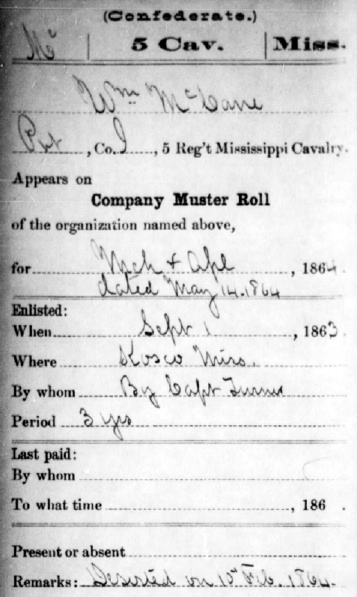 (Confederate.)
Mc 5 Cav. Miss.
Wm McCane
Pvt, Co. I, 5 Reg't Mississippi Cavalry.
Appears on
Company Muster Roll
of the organization named above,
for Mch & Apl, 1864.
dated May 14. 1864
Enlisted:
When Sept 1, 1863.
Where Kosco Miss.
By whom By Capt Turner
Period 3 yrs
Last paid:
By whom
To what time , 186 .
Present or absent
Remarks: Deserted on 10" Feb. 1864.